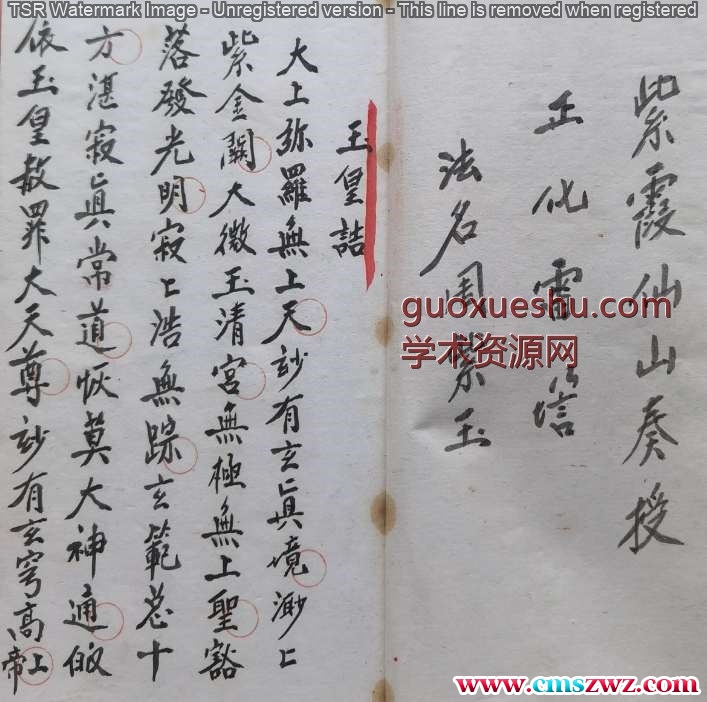 TSR Watermark Image - Unregistered version - This line is removed when registered
紫霞仙山奏授
正化雷
法名周紫玉
玉皇誥
大上弥羅無上天玅有玄眞境渺〻
紫金闕大微玉清宮無極無上聖豁
落發光明寂〻浩無踪玄範总十
方湛寂眞常道恢莫大神通皈
依玉皇赦罪大天尊玅有玄穹高上帝
guoxueshu.com
学术资源网
www.cmszwz.com